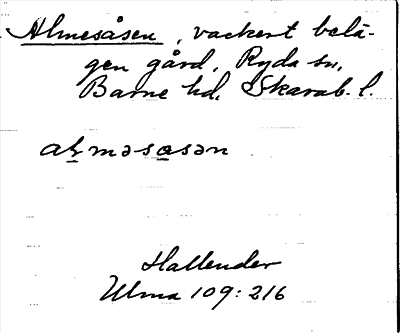 Almesåsen, vackert belä-
gen gård, Ryda sn,
Barne hd, Skarab. l.
aḷməsåsən
Hallender
Ulma 109:216